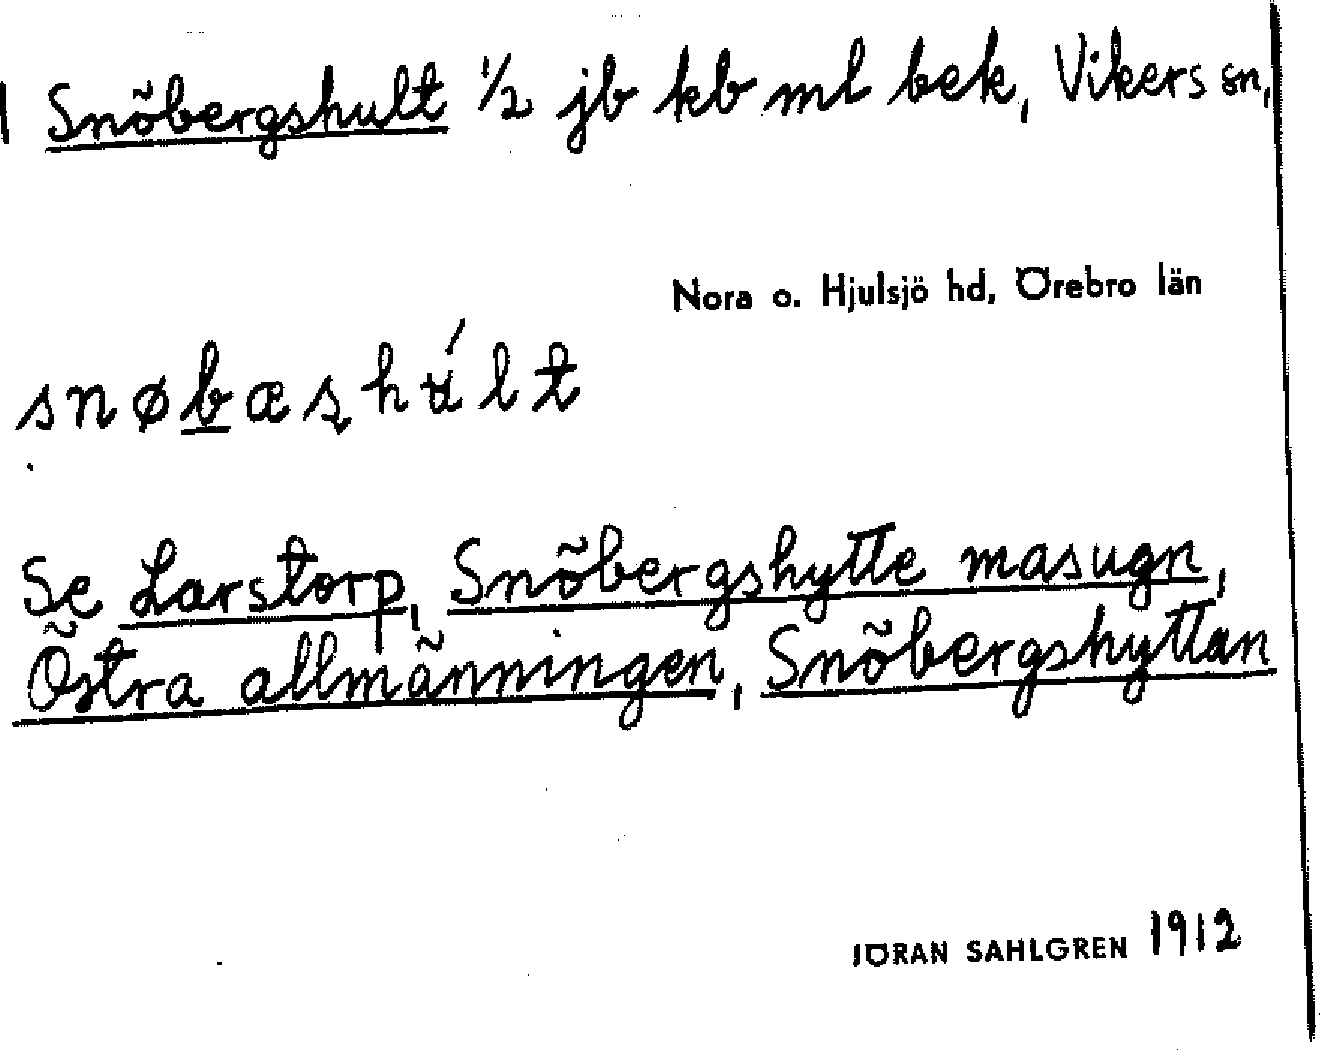 Snöbergshult 1/2 jb kb ml bek, Vikers sn,
Nora o. Hjulsjö hd, Örebro län
snøbæshúlt
Se Larstorp, Snöbergshytte masugn,
Östra allmänningen, Snöbergshyttan
JÖRAN SAHLGREN 1912